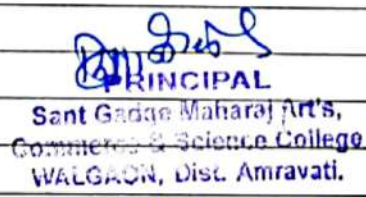 PRINCIPAL
Sant Gadge Maharaj Art's,
Commerce & Science College
WALGAON, Dist. Amravati.